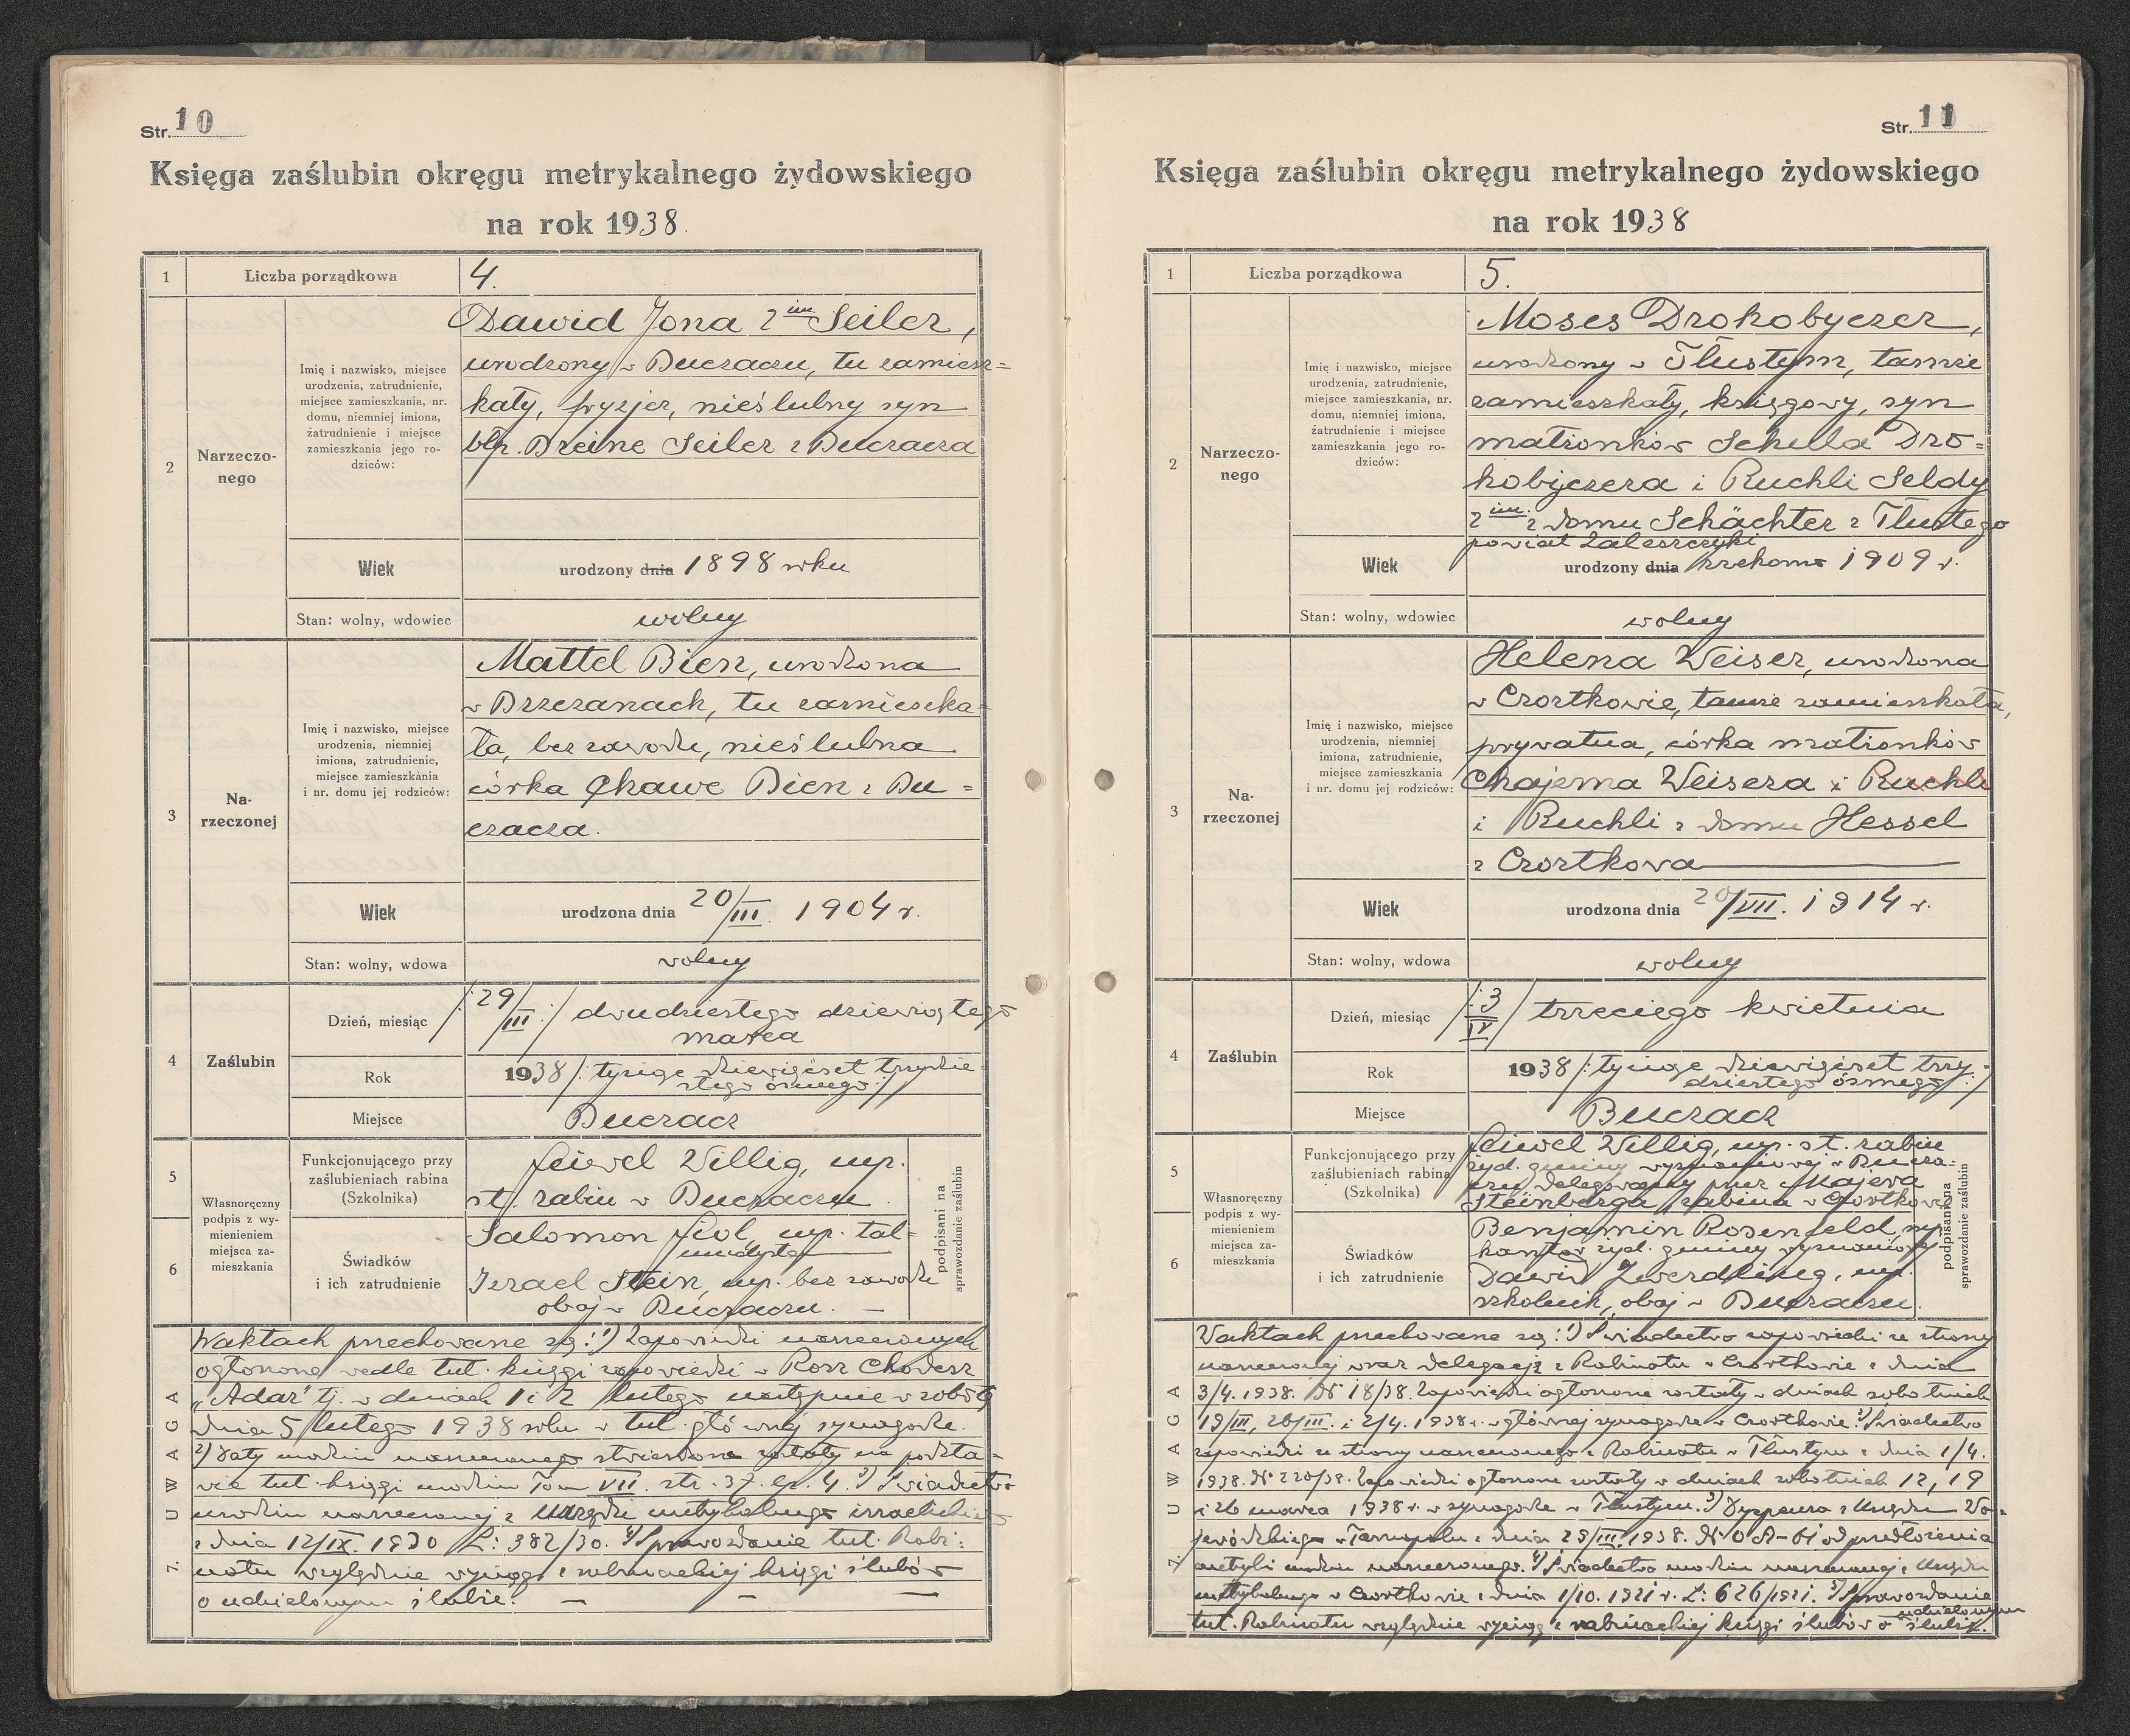 Str. 10
Księga zaślubin okręgu metrykalnego żydowskiego
na rok 1938.
1 Liczba porządkowa 4.
2 Narzeczo-
nego
Imię i nazwisko, miejsce
urodzenia, zatrudnienie,
miejsce zamieszkania, nr.
domu, niemniej imiona,
żatrudnienie i miejsce
zamieszkania jego ro-
dziców:
Dawid Jona 2 im Seiler,
urodzony w Buczaczu, tu zamiesz=
kały, fryzjer, nieślubny syn
błp. Dreine Seiler z Buczacza
Wiek urodzony dnia 1898 roku
Stan: wolny, wdowiec wolny
3 Na-
rzeczonej
Imię i nazwisko, miejsce
urodzenia, niemniej
imiona, zatrudnienie,
miejsce zamieszkania
i nr. domu jej rodziców:
Mattel Bien, urodzona
w Brzezanach, tu zamieszka=
ła, bez zawodu, nieślubna
córka Chawe Bien z Bu=
czacza.
Wiek urodzona dnia 20/III. 1904 r.
Stan: wolny, wdowa wolny
4 Zaślubin
Dzień, miesiąc /: 29/III :/ dwudziestego dziewiątego
marca
Rok 1938 /: tysiąc dziewięćset trzydzie=
stego ósmego :/
Miejsce Buczacz
5
6
Własnoręczny
podpis z wy-
mienieniem
miejsca za-
mieszkania
Funkcjonującego przy
zaślubieniach rabina
(Szkolnika)
Feiwel Willig, mp.
st. rabin w Buczaczu
Świadków
i ich zatrudnienie
Salomon Fiol, mp. tal=
mudysta
Izrael Stein, mp. bez zawodu
obaj w Buczaczu. —
podpisani na
sprawozdanie zaślubin
7. UWAGA
W aktach przechowane są: 1) Zapowiedzi narzeczonych
ogłoszone wedle tut. księgi zapowiedzi w Rosz Chodesz
„Adar" tj. w dniach 1 i 2 lutego następnie w sobotę
dnia 5 lutego 1938 roku w tut. głównej synagodze.
2) Daty urodzin narzeczonego stwierdzone zostały na podsta=
wie tut. księgi urodzin Tom VII. str. 37. lp. 4. 3) Świadectwo
urodzin narzeczonej z Urzędu metrykalnego izraelickiego
z dnia 12/IX. 1930 L: 382/30. 4) Sprawozdanie tut. Rabi=
natu względnie wyciąg z rabinackiej księgi ślubów
o udzielonym ślubie. — — —
Str. 11
Księga zaślubin okręgu metrykalnego żydowskiego
na rok 1938
1 Liczba porządkowa 5.
2 Narzeczo-
nego
Imię i nazwisko, miejsce
urodzenia, zatrudnienie,
miejsce zamieszkania, nr.
domu, niemniej imiona,
żatrudnienie i miejsce
zamieszkania jego ro-
dziców:
Moses Drohobyczer,
urodzony w Tłustym, tamże
zamieszkały, księgowy, syn
małżonków Schulla Dro=
hobyczera i Ruchli Seldy
2 im. z domu Schächter z Tłustego
powiat Zaleszczyki
Wiek urodzony dnia rzekomo 1909 r.
Stan: wolny, wdowiec wolny
3 Na-
rzeczonej
Imię i nazwisko, miejsce
urodzenia, niemniej
imiona, zatrudnienie,
miejsce zamieszkania
i nr. domu jej rodziców:
Helena Weiser, urodzona
w Czortkowie, tamże zamieszkała,
prywatna, córka małżonków
Chajema Weisera i Ruchli
i Ruchli z domu Hessel
z Czortkowa
Wiek urodzona dnia 20/VII. 1914 r.
Stan: wolny, wdowa wolny
4 Zaślubin
Dzień, miesiąc /: 3/IV :/ trzeciego kwietnia
Rok 1938 /: tysiąc dziewięćset trzy=
dziestego ósmego :/
Miejsce Buczacz
5
6
Własnoręczny
podpis z wy-
mienieniem
miejsca za-
mieszkania
Funkcjonującego przy
zaślubieniach rabina
(Szkolnika)
Feiwel Willig, mp. st. rabin
żyd. gminy wyznaniowej w Bucza=
czu delegowany przez Majera
Steinberga rabina w Czortkowie
Świadków
i ich zatrudnienie
Benjamin Rosenfeld, mp.
kantor żyd. gminy wyznaniowej
Dawid Zwerdling, mp.
szkolnik, obaj w Buczaczu.
podpisani na
sprawozdanie zaślubin
7. UWAGA
W aktach przechowane są: 1) Świadectwo zapowiedzi ze strony
narzeczonej oraz delegację z Rabinatu w Czortkowie z dnia
3/4. 1938. № 18/38. Zapowiedzi ogłoszone zostały w dniach sobotnich
19/III, 26/III. i 2/4. 1938 r. w głównej synagodze w Czortkowie. 2) Świadectwo
zapowiedzi ze strony narzeczonego z Rabinatu w Tłustym z dnia 1/4.
1938. № 220/38. Zapowiedzi ogłoszone zostały w dniach sobotnich 12, 19
i 26 marca 1938 r. w synagodze w Tłustym. 3) Dyspensa z Urzędu Wo=
jewódzkiego w Tarnopolu z dnia 29/III. 1938. № OA-61 od przedłożenia
metryki urodzin narzeczonego. 4) Świadectwo urodzin narzeczonej z Urzędu
metrykalnego w Czortkowie z dnia 1/10. 1921 r. L: 626/1921. 5) Sprawozdanie
tut. Rabinatu względnie wyciąg z rabinackiej księgi ślubów o udzielonym ślubie.